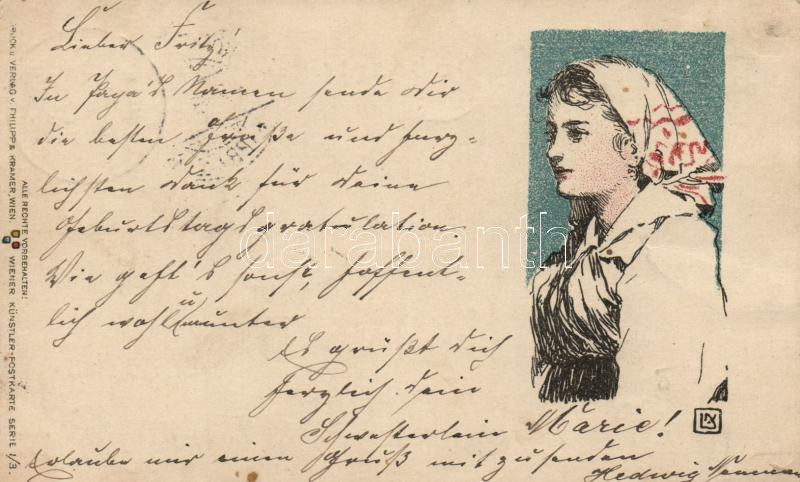 Lieber Fritz!
In Papa's Namen sende Dir
die besten Grüße und herz-
lichsten Dank für Deine
Geburtstagsgratulation.
Wie geht's sonst, hoffent-
lich wohl u munter
Es grüßt Dich
herzlich dein
Schwesterlein Marie!
Erlaube mir einen Gruß mitzusenden
Hedwig
DRUCK U VERLAG V. PHILIPP & KRAMER, WIEN.
WIENER KÜNSTLER-POSTKARTE SERIE 1/3.
ALLE RECHTE VORBEHALTEN!
darabanth